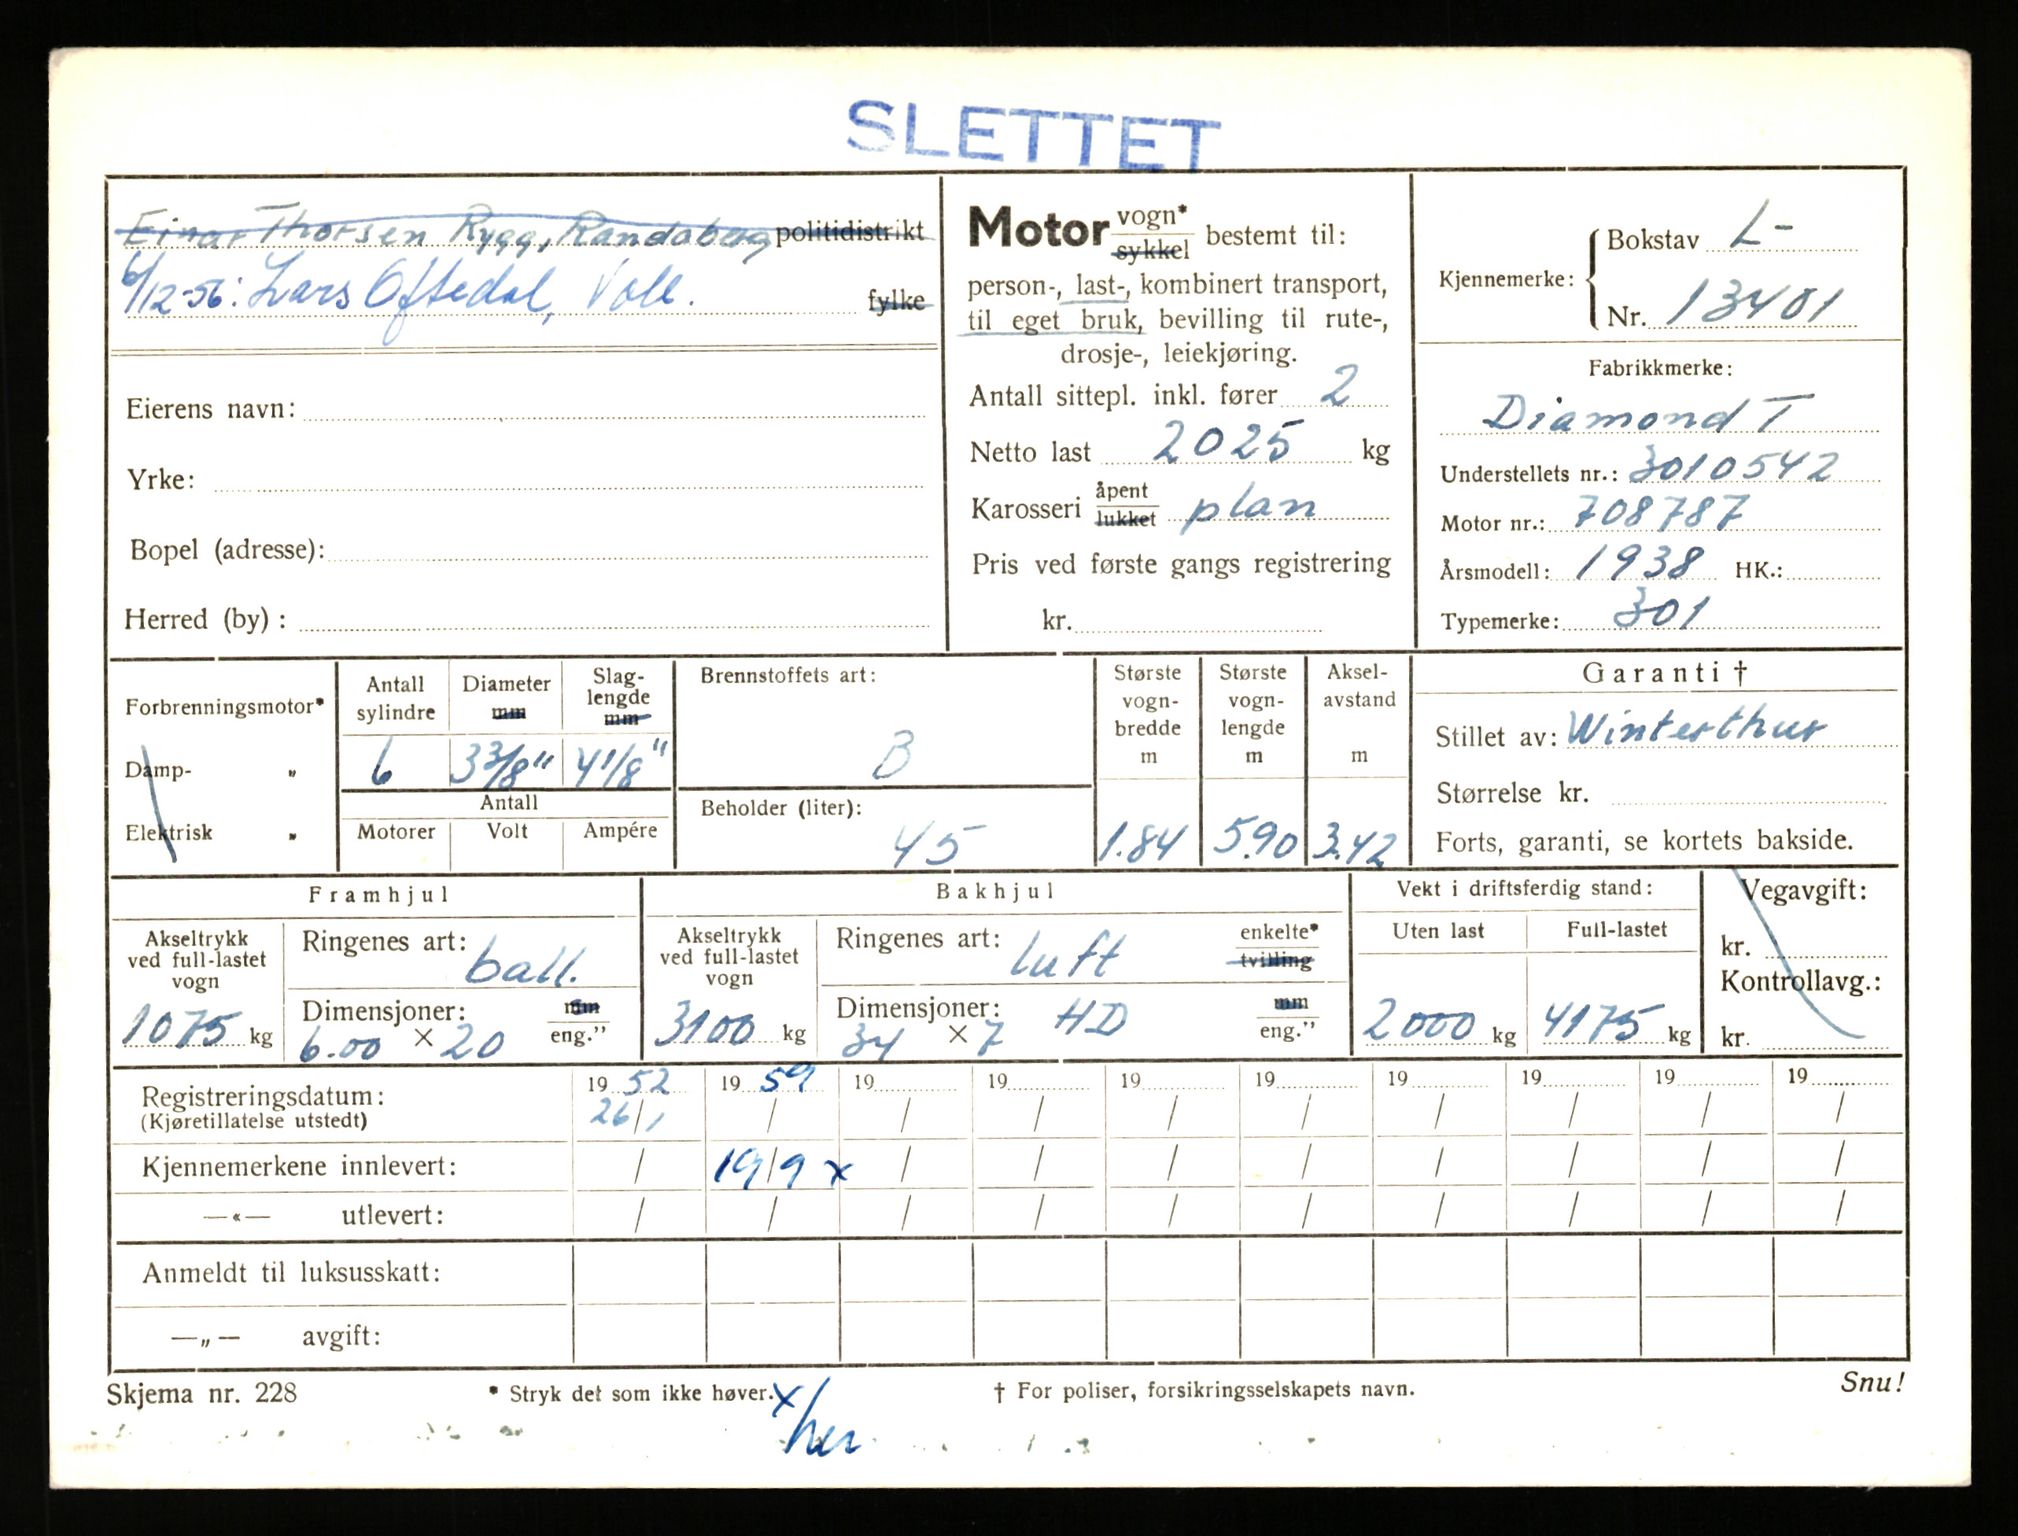 SLETTET
Einar Thorsen Rygg, Randaberg politidistrikt
6/12-56: Lars Oftedal, Voll. fylke
Eierens navn:
Yrke:
Bopel (adresse):
Herred (by) :
Motor vogn* sykkel bestemt til:
person-, last-, kombinert transport,
til eget bruk, bevilling til rute-,
drosje-, leiekjøring.
Antall sittepl. inkl. fører 2
Netto last 2025 kg
Karosseri åpent lukket plan
Pris ved første gangs registrering
kr.
Kjennemerke: Bokstav L-
Nr. 13401
Fabrikkmerke:
Diamond T
Understellets nr.: 3010542
Motor nr.: 708787
Årsmodell: 1938 HK.:
Typemerke: 301
Forbrenningsmotor*
Damp- „
Elektrisk „
Antall sylindre
6
Diameter mm
3 3/8"
Slag-lengde mm
4 1/8"
Antall
Motorer Volt Ampére
Brennstoffets art:
B
Beholder (liter):
45
Største vogn-bredde m
1.84
Største vogn-lengde m
5.90
Aksel-avstand m
3.42
Garanti †
Stillet av: Winterthur
Størrelse kr.
Forts, garanti, se kortets bakside.
Framhjul
Akseltrykk ved full-lastet vogn
1075 kg
Ringenes art: ball.
Dimensjoner: mm
6.00 × 20 eng."
Bakhjul
Akseltrykk ved full-lastet vogn
3100 kg
Ringenes art: luft enkelte* tvilling
Dimensjoner: mm
34 × 7 HD eng."
Vekt i driftsferdig stand:
Uten last Full-lastet
2000 kg 4175 kg
Vegavgift:
kr.
Kontrollavg.:
kr.
Registreringsdatum: 19 52 19 59 19 19 19 19 19 19 19 19
(Kjøretillatelse utstedt) 26/1 / / / / / / / / /
Kjennemerkene innlevert: / 19/9 x / / / / / / / /
—«— utlevert: / / / / / / / / / /
Anmeldt til luksusskatt:
—„— avgift:
Skjema nr. 228 * Stryk det som ikke høver. † For poliser, forsikringsselskapets navn. Snu!
x/her